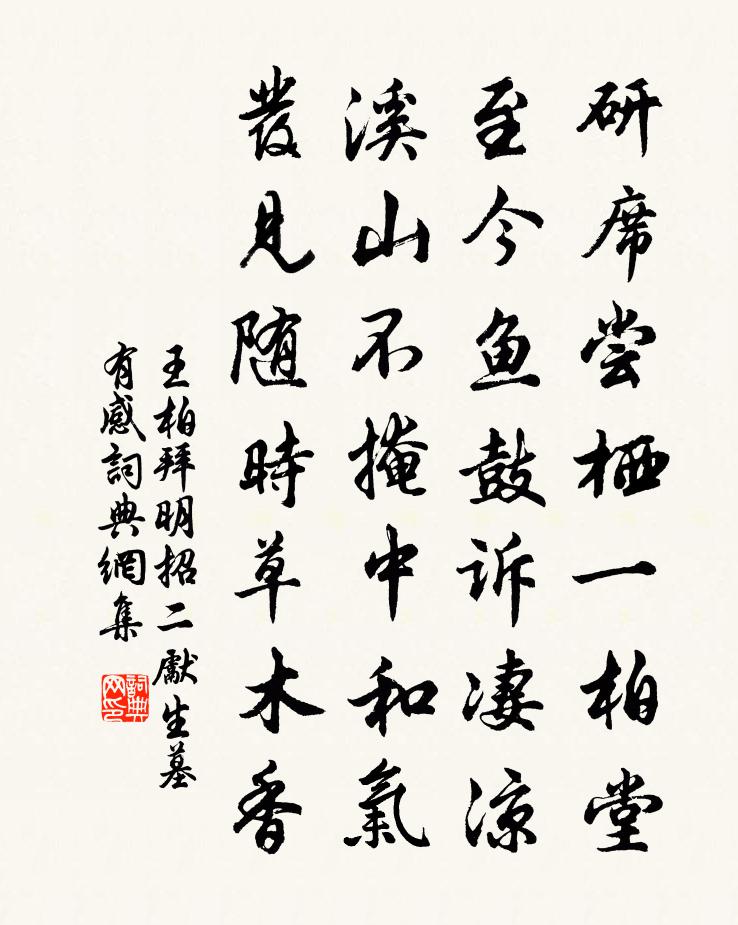 研席尝栖一柏堂
至今鱼鼓诉凄凉
溪山不掩中和氣
發见随時草木香
王柏拜明招二獻生墓
有感詞典網集
詞典网印